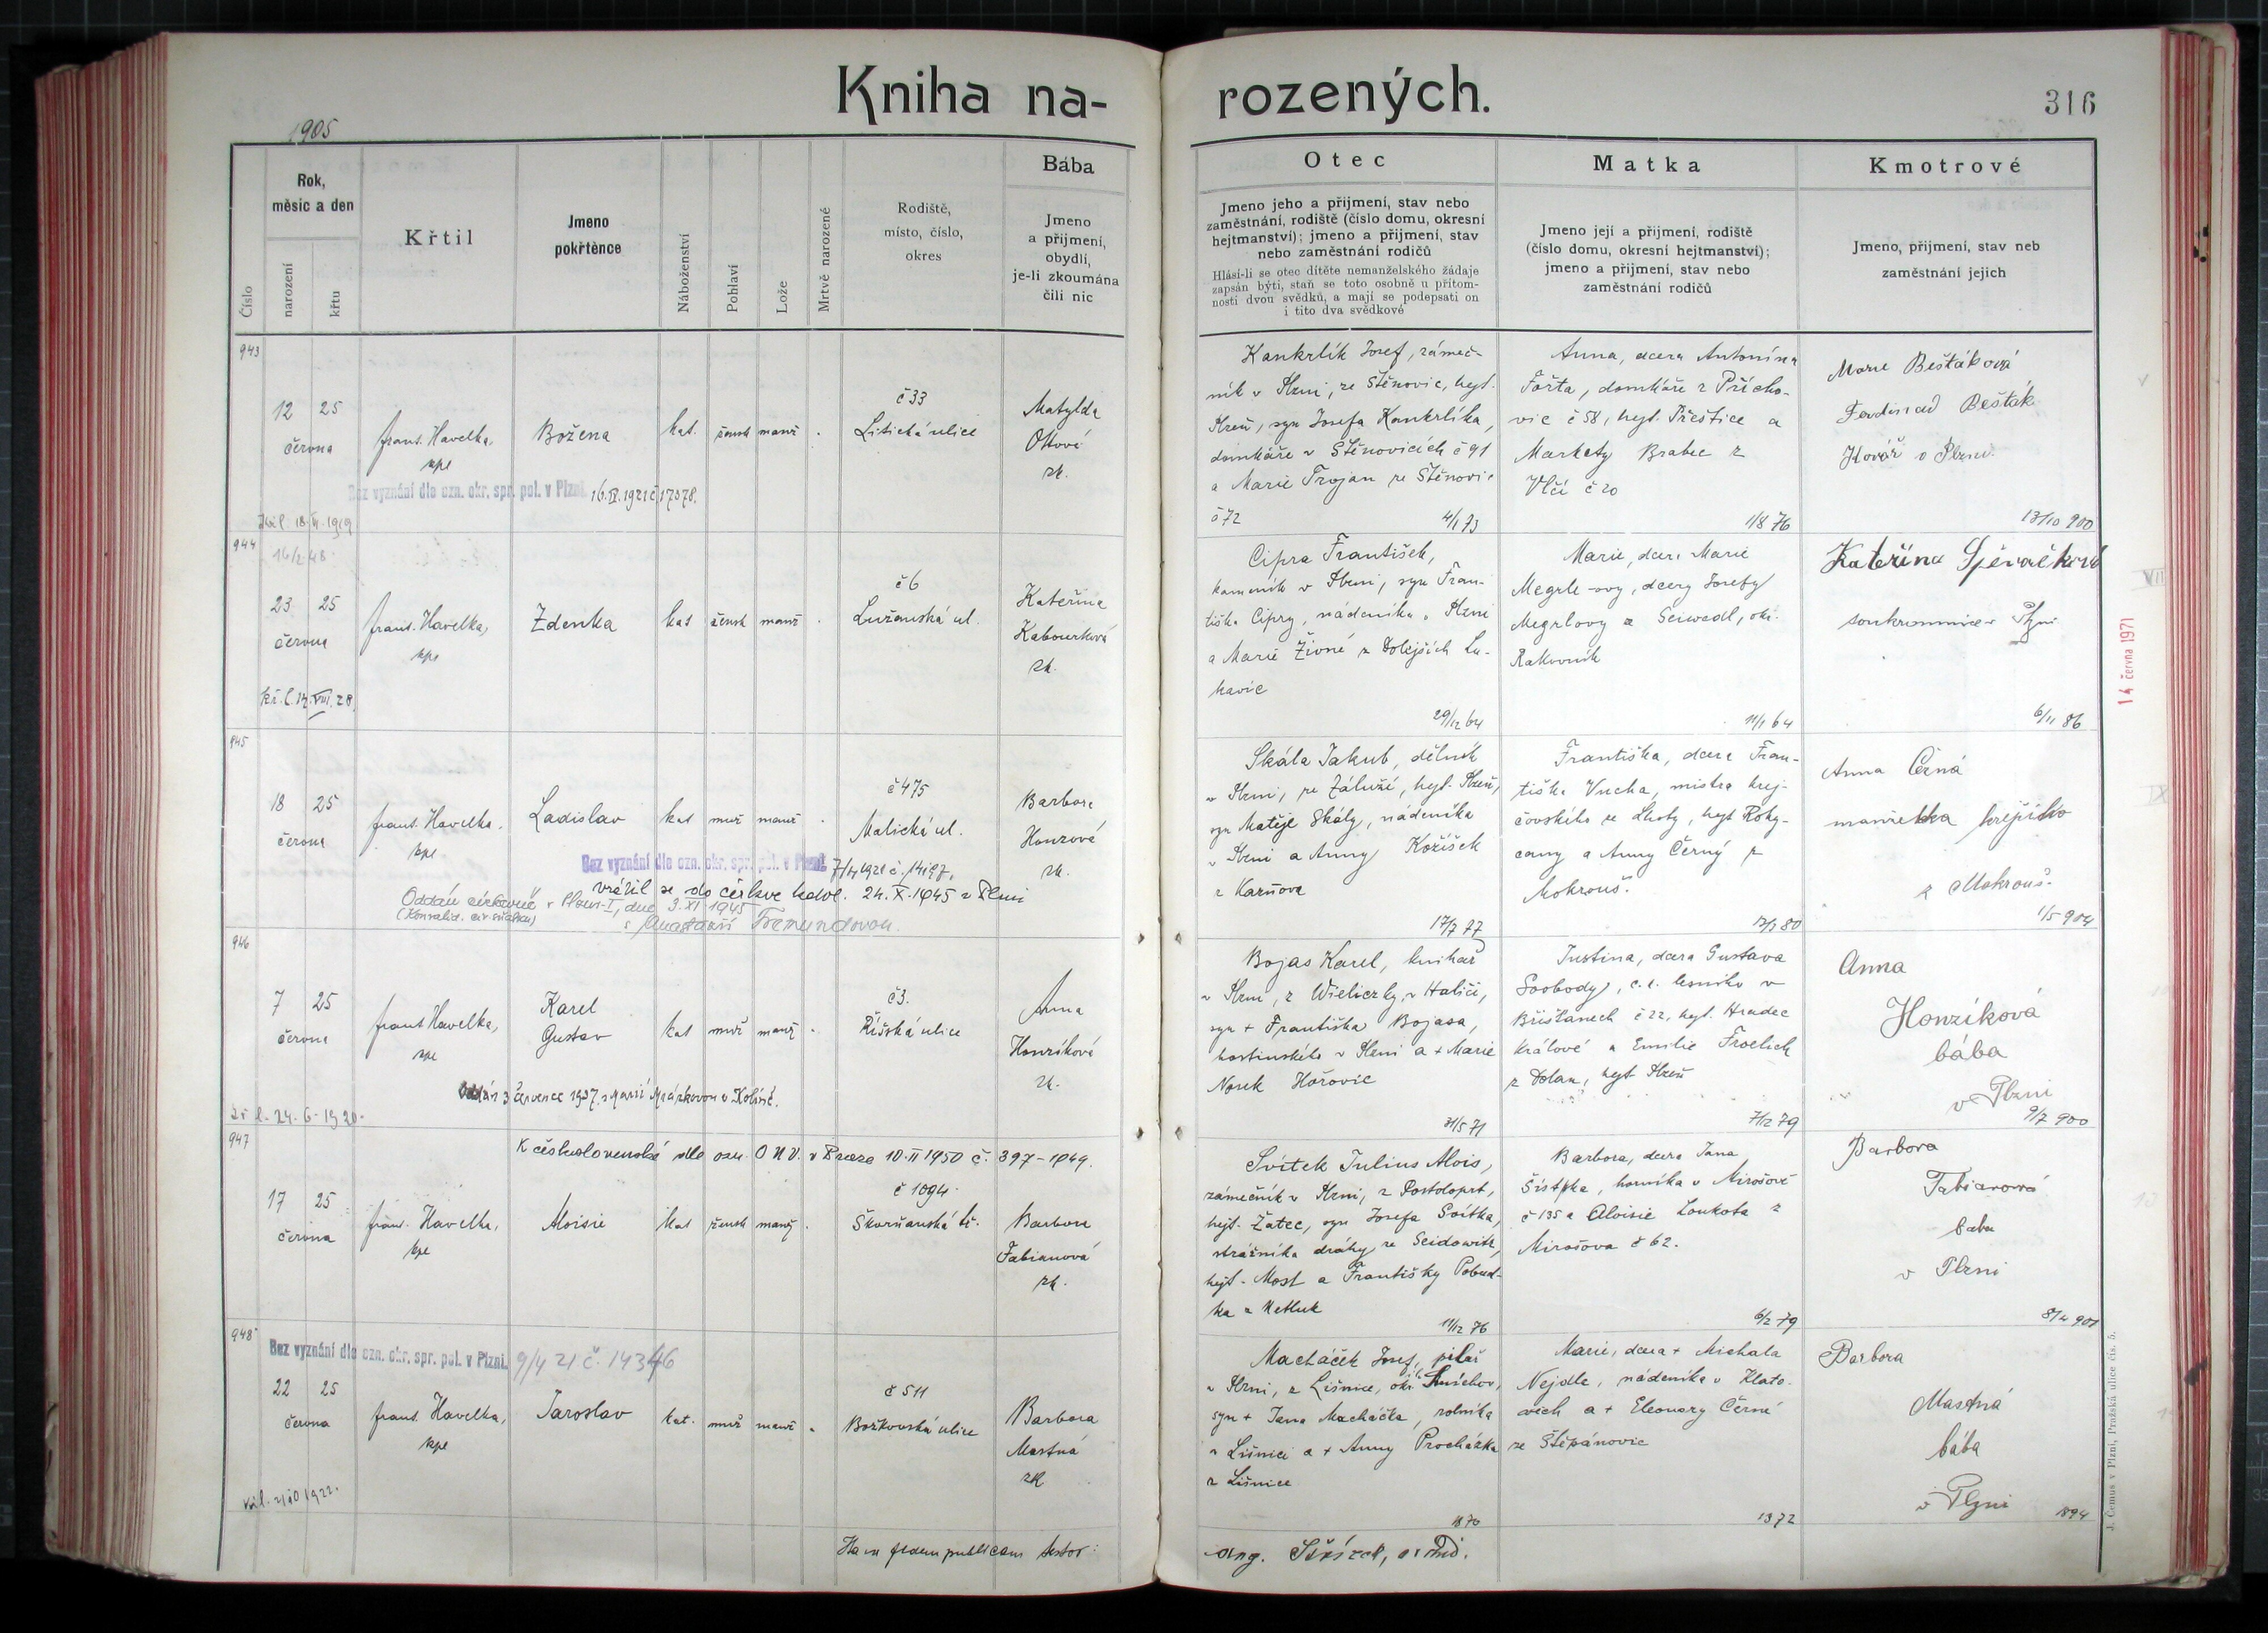 Kniha na-
rozených.
316
1905
Číslo
Rok,
měsíc a den
narození
křtu
Křtil
Jmeno
pokřtěnce
Náboženství
Pohlaví
Lože
Mrtvě narozené
Rodiště,
místo, číslo,
okres
Bába
Jmeno
a přijmení,
obydlí,
je-li zkoumána
čili nic
Otec
Jmeno jeho a přijmení, stav nebo
zaměstnání, rodiště (číslo domu, okresní
hejtmanství); jmeno a přijmení, stav
nebo zaměstnání rodičů
Hlásí-li se otec dítěte nemanželského žádaje
zapsán býti, staň se toto osobně u přítom-
nosti dvou svědků, a mají se podepsati on
i tito dva svědkové
Matka
Jmeno její a přijmení, rodiště
(číslo domu, okresní hejtmanství);
jmeno a přijmení, stav nebo
zaměstnání rodičů
Kmotrové
Jmeno, přijmení, stav neb
zaměstnání jejich
943
12 25
června
frant. Havelka,
kpl
Božena
kat.
žensk
manž
č 33
Litická ulice
Matylda
Ottová
zk.
Bez vyznání dle ozn. okr. spr. pol. v Plzni. 16. IV. 1921 č 17378.
Kankrlík Josef, zámeč-
ník v Plzni, ze Štěnovic, hejt.
Plzeň, syn Josefa Kankrlíka,
domkáře v Štěnovicích č 91
a Marie Trojan ze Štěnovic
č 72
4/1 73
Anna, dcera Antonína
Fořta, domkáře z Přícho-
vic č 58, hejt. Přeštice a
Markety Brabec z
Vlčí č 20
1/8 76
Marie Bešťáková
Ferdinad Bešťák
Kovář v Plzni.
13/10 900
944
16/2 48
23 25
června
frant. Havelka,
kpl
Zdenka
kat
žensk
manž
č 6
Lužanská ul.
Kateřina
Kabourková
zk.
kř. l. 14. VIII. 28.
Cipra František,
kameník v Plzni, syn Fran-
tiška Cipry, nádeníka v Plzni
a Marie Živné z Dolejších Lu-
kavic
29/12 64
Marie, dcera Marie
Megrle-ovy, dcery Josefy
Megrlovy z Seiwedl, okr.
Rakovník
11/1 64
Kateřina
soukromnice v Plzni
6/11 86
945
18 25
června
frant. Havelka,
kpl
Ladislav
kat
muž
manž
č 475
Malická ul.
Barbora
Honzová
zk.
Bez vyznání dle ozn. okr. spr. pol. v Plzni. 7/4 1921 č. 14197.
vrátil se do církve katol. 24. X. 1945 v Plzni
Oddán církevně v Plzni-I, dne 3. XI 1945
(Konvalid. civ. sňatku)
s Anastazií
Skála Jakub, dělník
v Plzni, ze Záluží, hejt. Plzeň,
syn Matěje Skály, nádeníka
v Plzni a Anny Kožíšek
z Karňova
17/7 77
Františka, dcera Fran-
tiška Vucha, mistra krej-
čovského ze Lhoty, hejt Roky-
cany a Anny Černý z
Mokrouš.
12/3 80
Anna Černá
manželka krejčího
z Mokrouš.
1/5 904
946
7 25
června
frant Havelka,
kpl
Karel
Gustav
kat
muž
manž
č 3.
Říšská ulice
Anna
Honzíková
zk.
Oddán 3 července 1937 s Marií Mrázkovou v Kolíně.
kř l. 24. 6. 1920.
Bojas Karel, knihař
v Plzni, z Wieliczky, v Haliči,
syn + Františka Bojasa,
hostinského v Plzni a + Marie
Nosek Hořovic
31/5 71
Justina, dcera Gustava
Svobody, c. k. lesníka v
Bříšťanech č 22, hejt. Hradec
Králové a Emilie Froelich
z Dolan, hejt Plzeň
7/12 79
Anna
Honzíková
bába
v Plzni
9/7 900
947
K československé dle ozn O N V. v Praze 10. II 1950 č. 397-1949.
17 25
června
frant. Havelka,
kpl
Aloisie
kat
žensk
manž.
č 1094
Škvrňanská tř.
Barbora
Fabianová
zk.
Svítek Julius Alois,
zámečník v Plzni, z Postoloprt,
hejt. Žatec, syn Josefa Svítka,
strážníka dráhy ze Seidowitz,
hejt. Most a Františky Pobud-
ka z Netluk
11/12 76
Barbora, dcera Jana
Šístka, horníka v Mirošově
č 135 a Aloisie Loukota z
Mirošova č 62.
6/2 79
Barbora
Fabianová
baba
v Plzni
8/4 901
948
Bez vyznání dle ozn. okr. spr. pol. v Plzni. 9/4 21 č. 14346
22 25
června
frant. Havelka,
kpl
Jaroslav
kat.
muž
manž
č 511
Božkovská ulice
Barbora
Mastná
zk
Macháček Josef, pilař
v Plzni, z Lišnice, okr. Smíchov,
syn + Jana Macháčka, rolníka
v Lišnici a + Anny Procházka
z Lišnice
1870
Marie, dcera + Michala
Nejdle, nádeníka v Klato-
vech a + Eleonory Černé
ze Štěpánovic
1872
Barbora
Mastná
bába
v Plzni
1894
In fidem publicam testor:
Aug.
14 června 1971
J. Čemus v Plzni, Pražská ulice čís. 5.